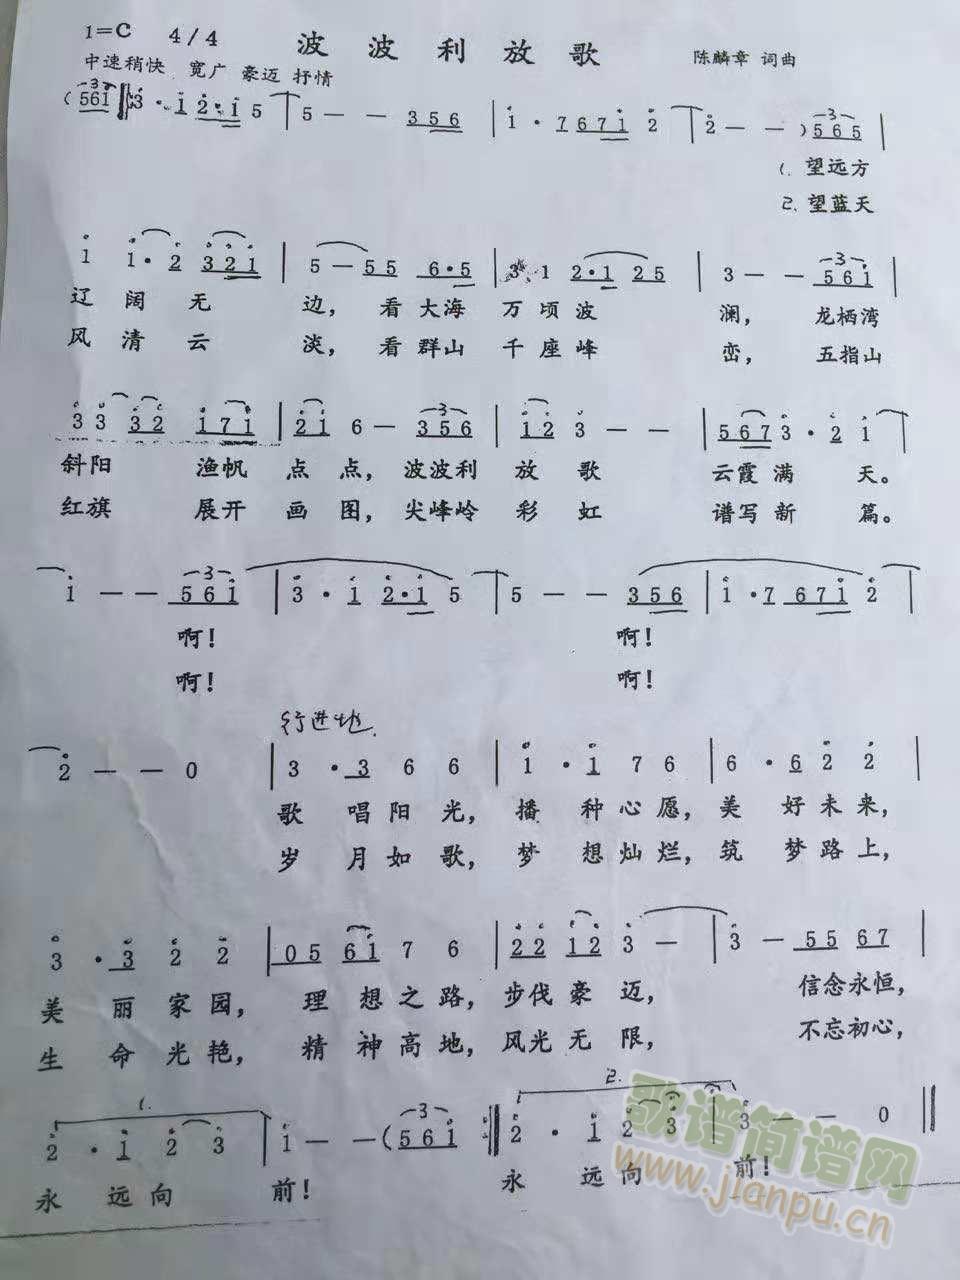 1=C 4/4 波波利放歌 陈麟章 词曲
中速稍快 宽广 豪迈 抒情
(561 3·1 2·1 5 | 5 - - 356 | 1·7 671 2 | 2 - - )565 |
1. 望远方
2. 望蓝天
1 1·2 321 | 5 - 55 6·5 | 3 1 2·1 25 | 3 - - 561 |
辽阔无边,看大海万顷波澜,龙栖湾
风清云淡,看群山千座峰峦,五指山
3 3 32 171 | 21 6 - 356 | 12 3 - - | 567 3·2 1 |
斜阳渔帆点点,波波利放歌云霞满天。
红旗展开画图,尖峰岭彩虹谱写新篇。
1 - - 561 | 3·1 2·1 5 | 5 - - 356 | 1·7 671 2 |
啊! 啊!
啊! 啊!
行进地
2 - - 0 | 3·3 6 6 | 1·1 7 6 | 6·6 2 2 |
歌唱阳光,播种心愿,美好未来,
岁月如歌,梦想灿烂,筑梦路上,
3·3 2 2 | 05 61 7 6 | 22 12 3 - | 3 - 55 67 |
美丽家园,理想之路,步伐豪迈,信念永恒,
生命光艳,精神高地,风光无限,不忘初心,
1. 2.
2·1 2 3 | 1 - - (561 :| 2·1 2 3 | 3 - - 0 ||
永远向前! 永远向前!
歌谱简谱网
www.jianpu.cn